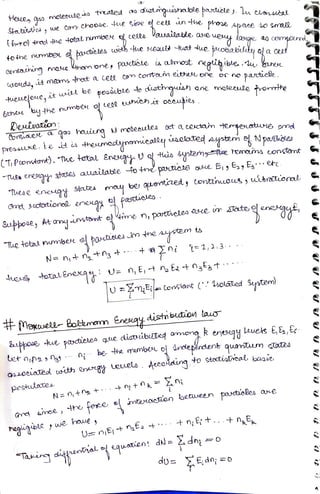 Here, gas molecule is treated as distinguishable particle, In classical
Statistics, we can choose the size of cell in the phase space so small
that the total number of cells available are very large as compared
to the number of particles with the result that the probability of a cell
containing more than one particle is almost negligible. In other
words, it means that a cell can contain either one or no particle.
therefore, it will be possible to distinguish one molecule from the
other by the number of cell which it occupies.
Derivation:
Consider a gas having N molecules at a certain temperature and
pressure. i.e it is thermodynamically isolated system of N particles
(T, P constant). The total Energy U of this system, the remains constant
The energy states available to the particle are E1, E2, E3... etc
These energy states may be quantized, continuous, vibrational
and rotational energy of particles.
Suppose, At any instant of time ni particles are in state of energy Ei
The total number of particles in the system is
N = n1 + n2 + n3 + ..... + = Σ ni i = 1,2,3...
thus total Energy: U = n1E1 + n2E2 + n3E3 + .....
U = Σ niEi = constant (∵ Isolated System)
# Maxwell- Boltzmann Energy distribution law
Suppose the particles are distributed among k energy levels E1, E2, E3
Let n1, n2, n3 ... ni be the number of independent quantum states
associated with energy levels. According to statistical basic
postulates
N = n1 + n2 + ..... + ni + nk = Σ ni
and since, the force of interaction between particles are
negligible, we have,
U = n1E1 + n2E2 + ..... + niEi + ... + nkEk
Taking differential of equation: dN = Σ dni = 0
dU = Σ Ei dni = 0